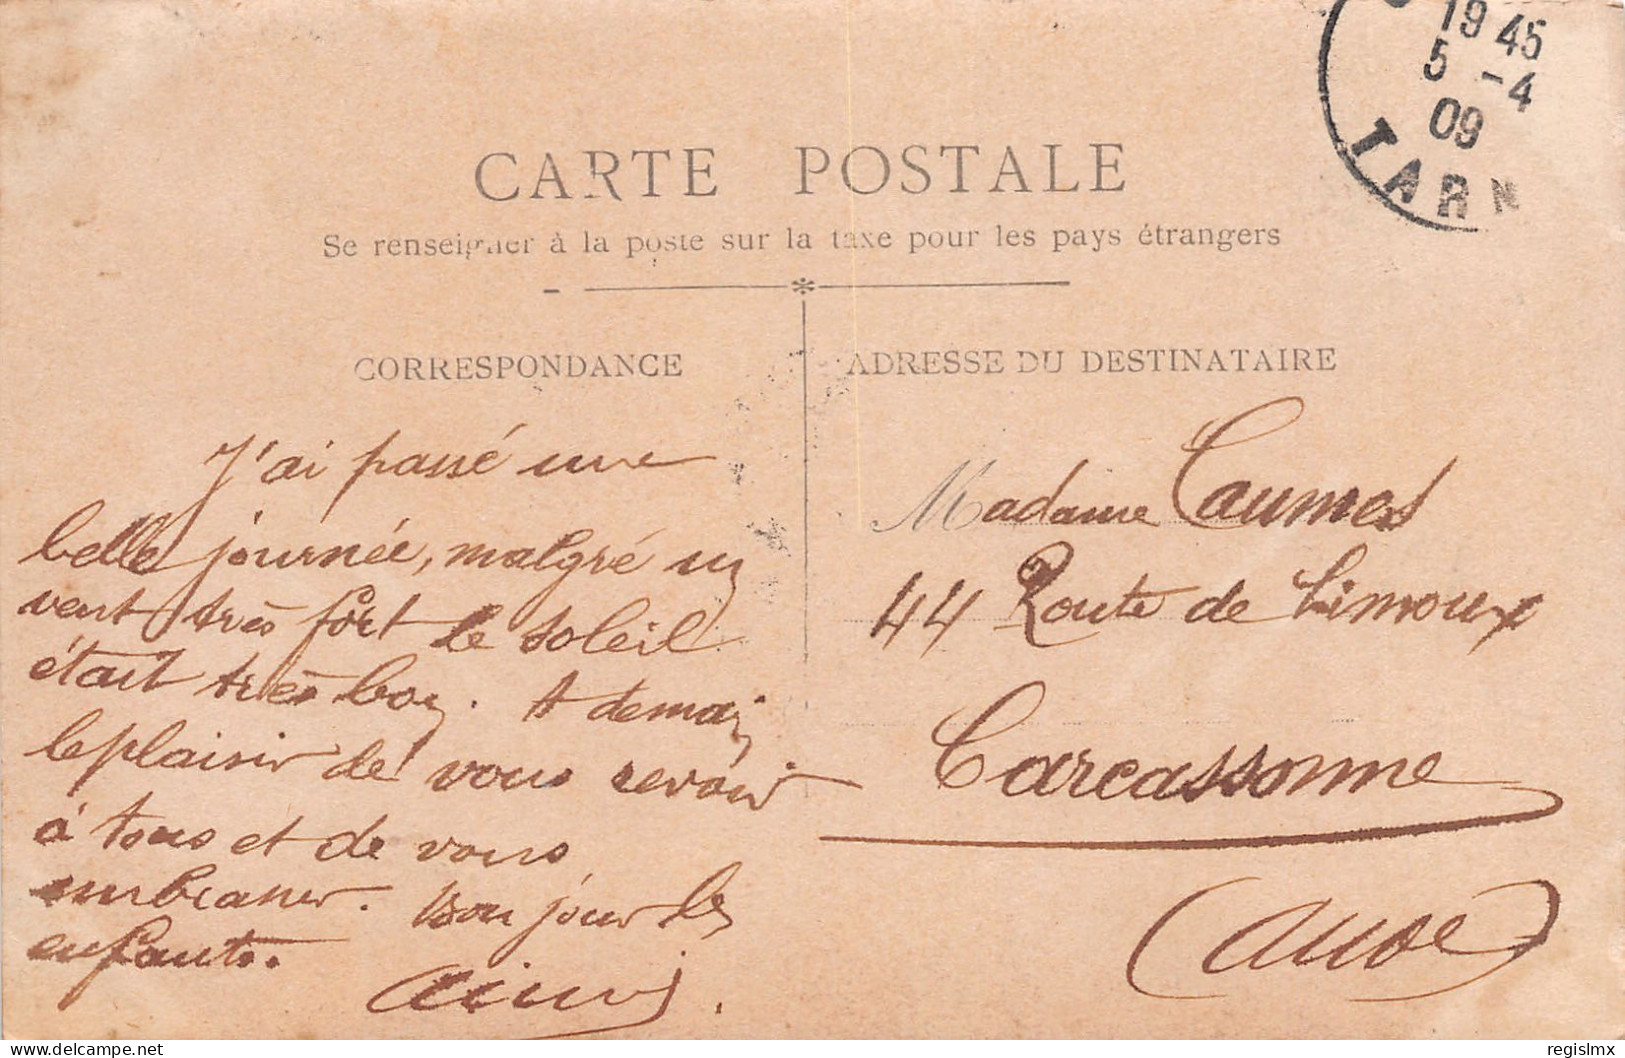 19 45
5 -4
09
TARN
CARTE POSTALE
Se renseigner à la poste sur la taxe pour les pays étrangers
CORRESPONDANCE
ADRESSE DU DESTINATAIRE
J'ai passé une
belle journée, malgré un
vent très fort le soleil
était très bon. A demain
le plaisir de vous revoir
à tous et de vous
embrasser. Bonjour les
enfants.
Madame
44 Route de Limoux
Carcassonne
(Aude)
delcampe.net
regislmx